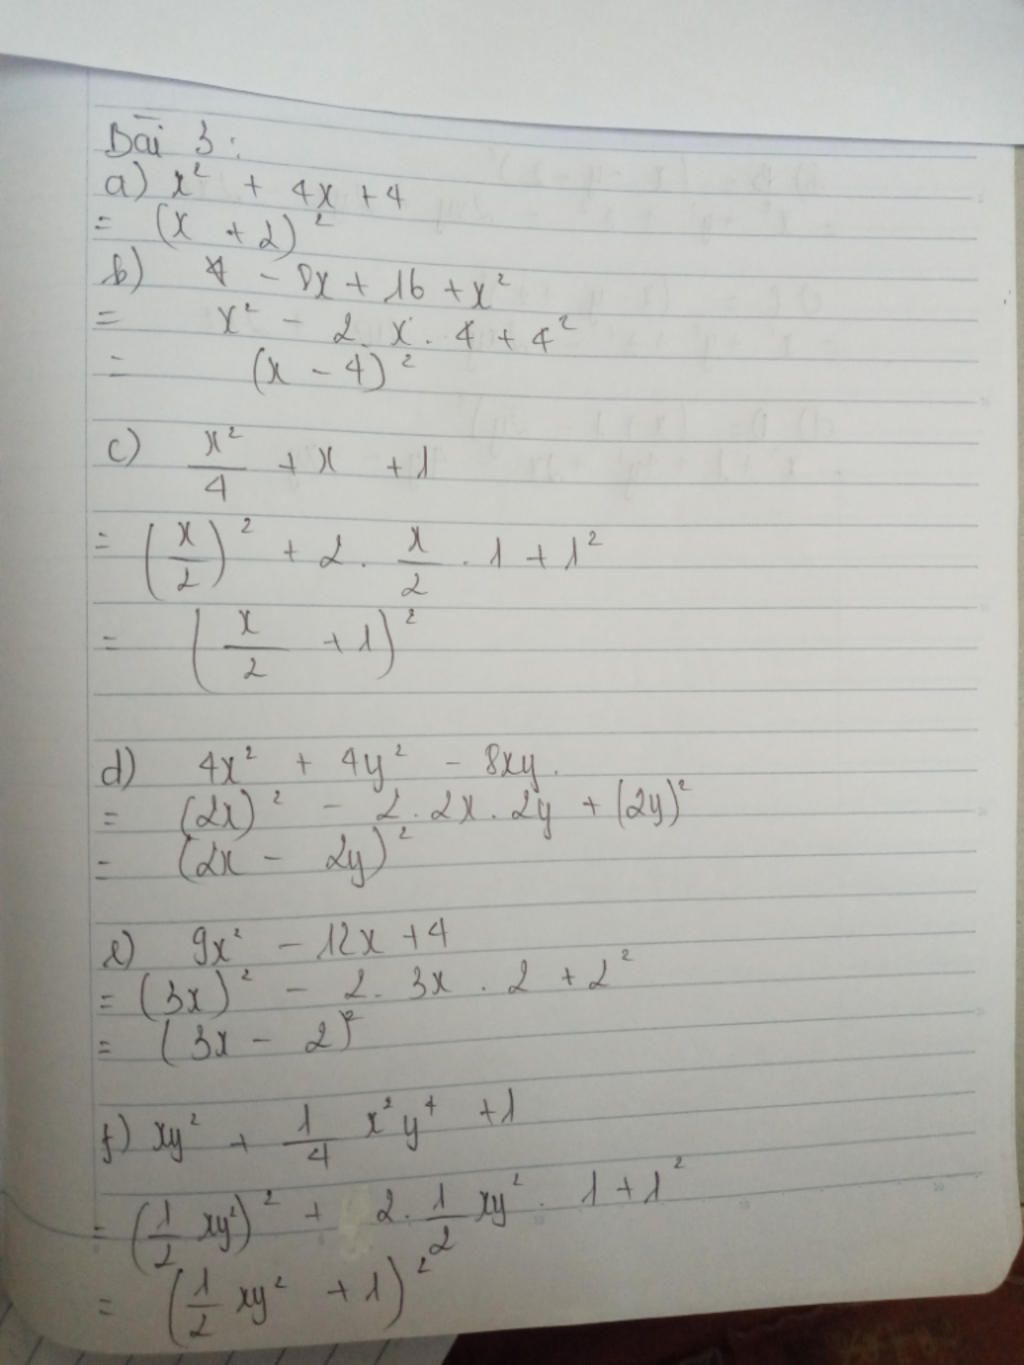 Bài 3:
a) x² + 4x + 4
= (x + 2)²
b) - 8x + 16 + x²
= x² - 2. x. 4 + 4²
= (x - 4)²
c) x²/4 + x + 1
= (x/2)² + 2. x/2 . 1 + 1²
= (x/2 + 1)²
d) 4x² + 4y² - 8xy.
= (2x)² - 2. 2x. 2y + (2y)²
= (2x - 2y)²
e) 9x² - 12x + 4
= (3x)² - 2. 3x . 2 + 2²
= (3x - 2)²
f) xy² + 1/4 x²y⁴ + 1
= (1/2 xy²)² + 2. 1/2 xy². 1 + 1²
= (1/2 xy² + 1)²